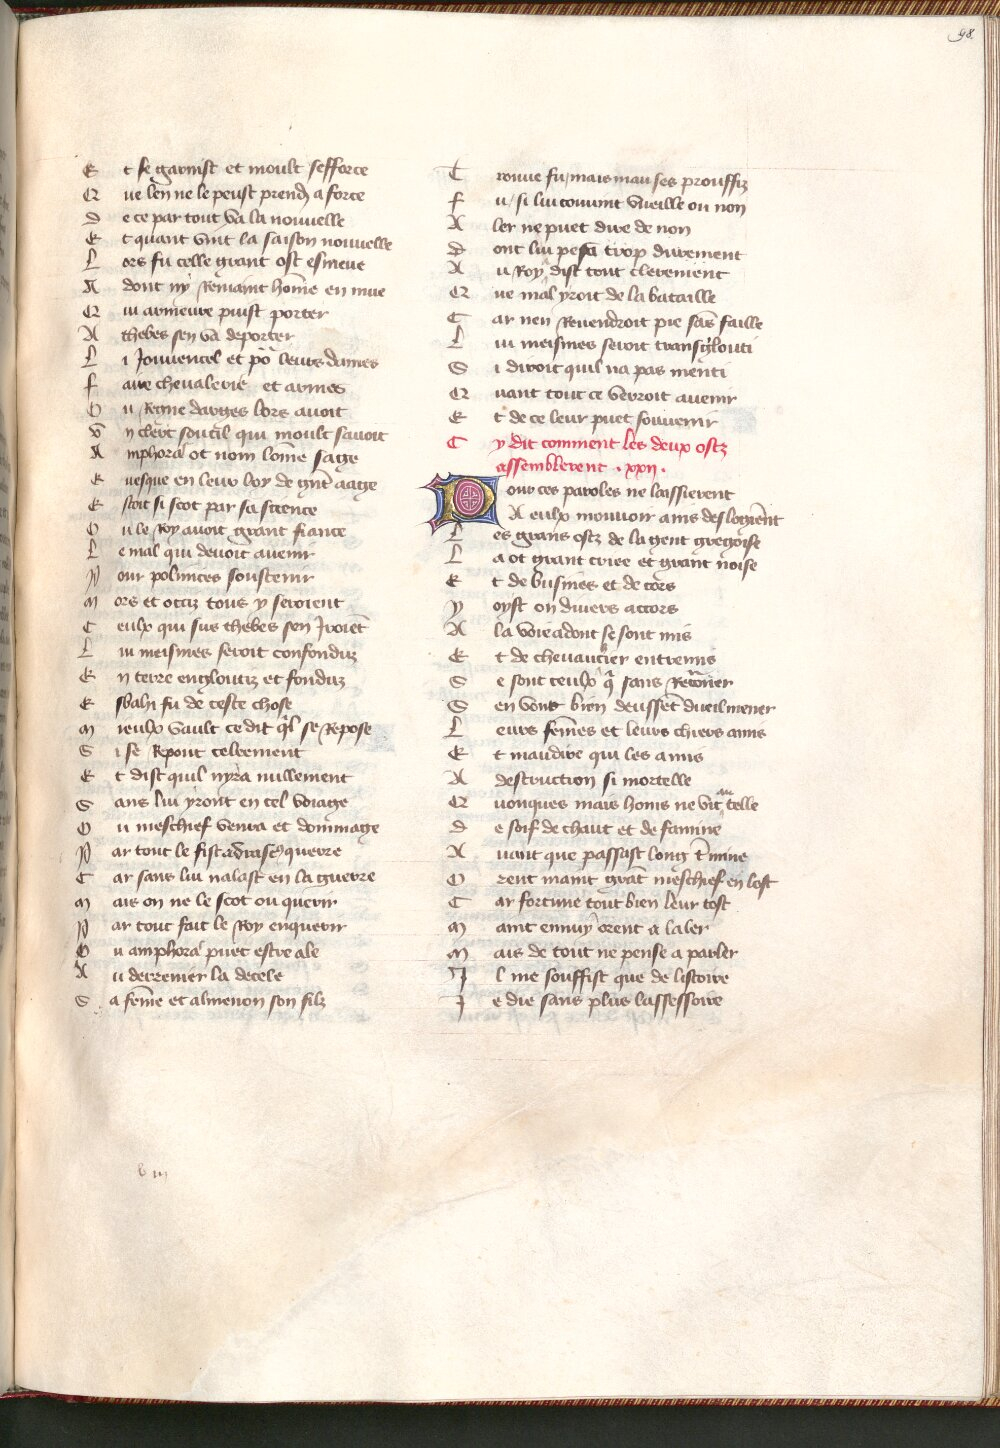 98.
Et se garnist et moult sefforce
Que len ne le peust prendre a force
De ce par tout va la nouvelle
Et quant vint la saison nouvelle
Lors fu celle grant ost esmeue
Adont ny Remaint hōme en mue
Qui armeure puist porter
A thebes sen va deporter
Li Jouvencel et po leurs dames
faire chevalerie et armes
Ou Regne darges lors avoit
vn clerc soutil qui moult savoit
Amphoras ot nom lōme sage
Evesque en leur loy de gnt aage
Estoit si scot par sa science
Ou le Roy avoit grant fiance
Le mal qui devoit avenir
Pour polinices soustenir
Mors et occiz tous y seroient
Ceulx qui sus thebes sen Jroiet
Lui meismes seroit confonduz
En terre engloutiz et fonduz
Esbahi fu de ceste chose
Mieulx vault ce dit ql se Repose
Si se Repont celeement
Et dist quil nyra nullement
Sans lui yront en cel voiage
Ou meschief venra et dommage
Par tout le fist adrase querre
Car sans lui nalast en la guerre
Mais on ne le scot ou querir
Par tout fait le Roy enquerir
Ou amphoras puet estre ale
Au derrenier la decele
Sa feme et almenon son filz
Trouve fu mais mau ses prouffiz
fu / si lui convint vueille ou non
Aler ne puet dire de non
Dont lui pesa trop durement
Au Roy dist tout clerement
Que mal yroit de la bataille
Car nen Revendroit pie sās faille
Lui meismes seroit transglouti
Si diroit quil na pas menti
Quant tout ce verroit avenir
Et de ce leur puet souvenir
Cy dit comment les deux ostz
assemblerent . xxii .
Pour ces paroles ne laissierent
A eulx mouvoir ains deslogieret
Les grans ostz de la gent gregoise
La ot grant criee et grant noise
Et de busines et de cors
Y oyst on divers accors
A la voie adont se sont mis
Et de chevauchier entremis
Se sont ceulx q sans Retorner
Sen vont bien deusset dueil mener
Leurs femes et leurs chiers amis
Et maudire qui les a mis
A destruction si mortelle
Quonques mais homs ne vit telle
De soif de chaut et de famine
Avant que passast long tmine
Orent maint grāt meschief en lost
Car fortune tout bien leur tost
Maint ennuy orent a laler
Mais de tout ne pense a parler
Il me souffist que de listoire
Je die sans plus lassessoire
v iii